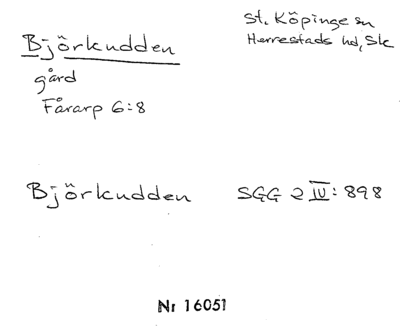 Björkudden
St. Köpinge sn
Herrestads hd, Sk
gård
Fårarp 6:8
Björkudden SGG 2 IV: 898
Nr 16051